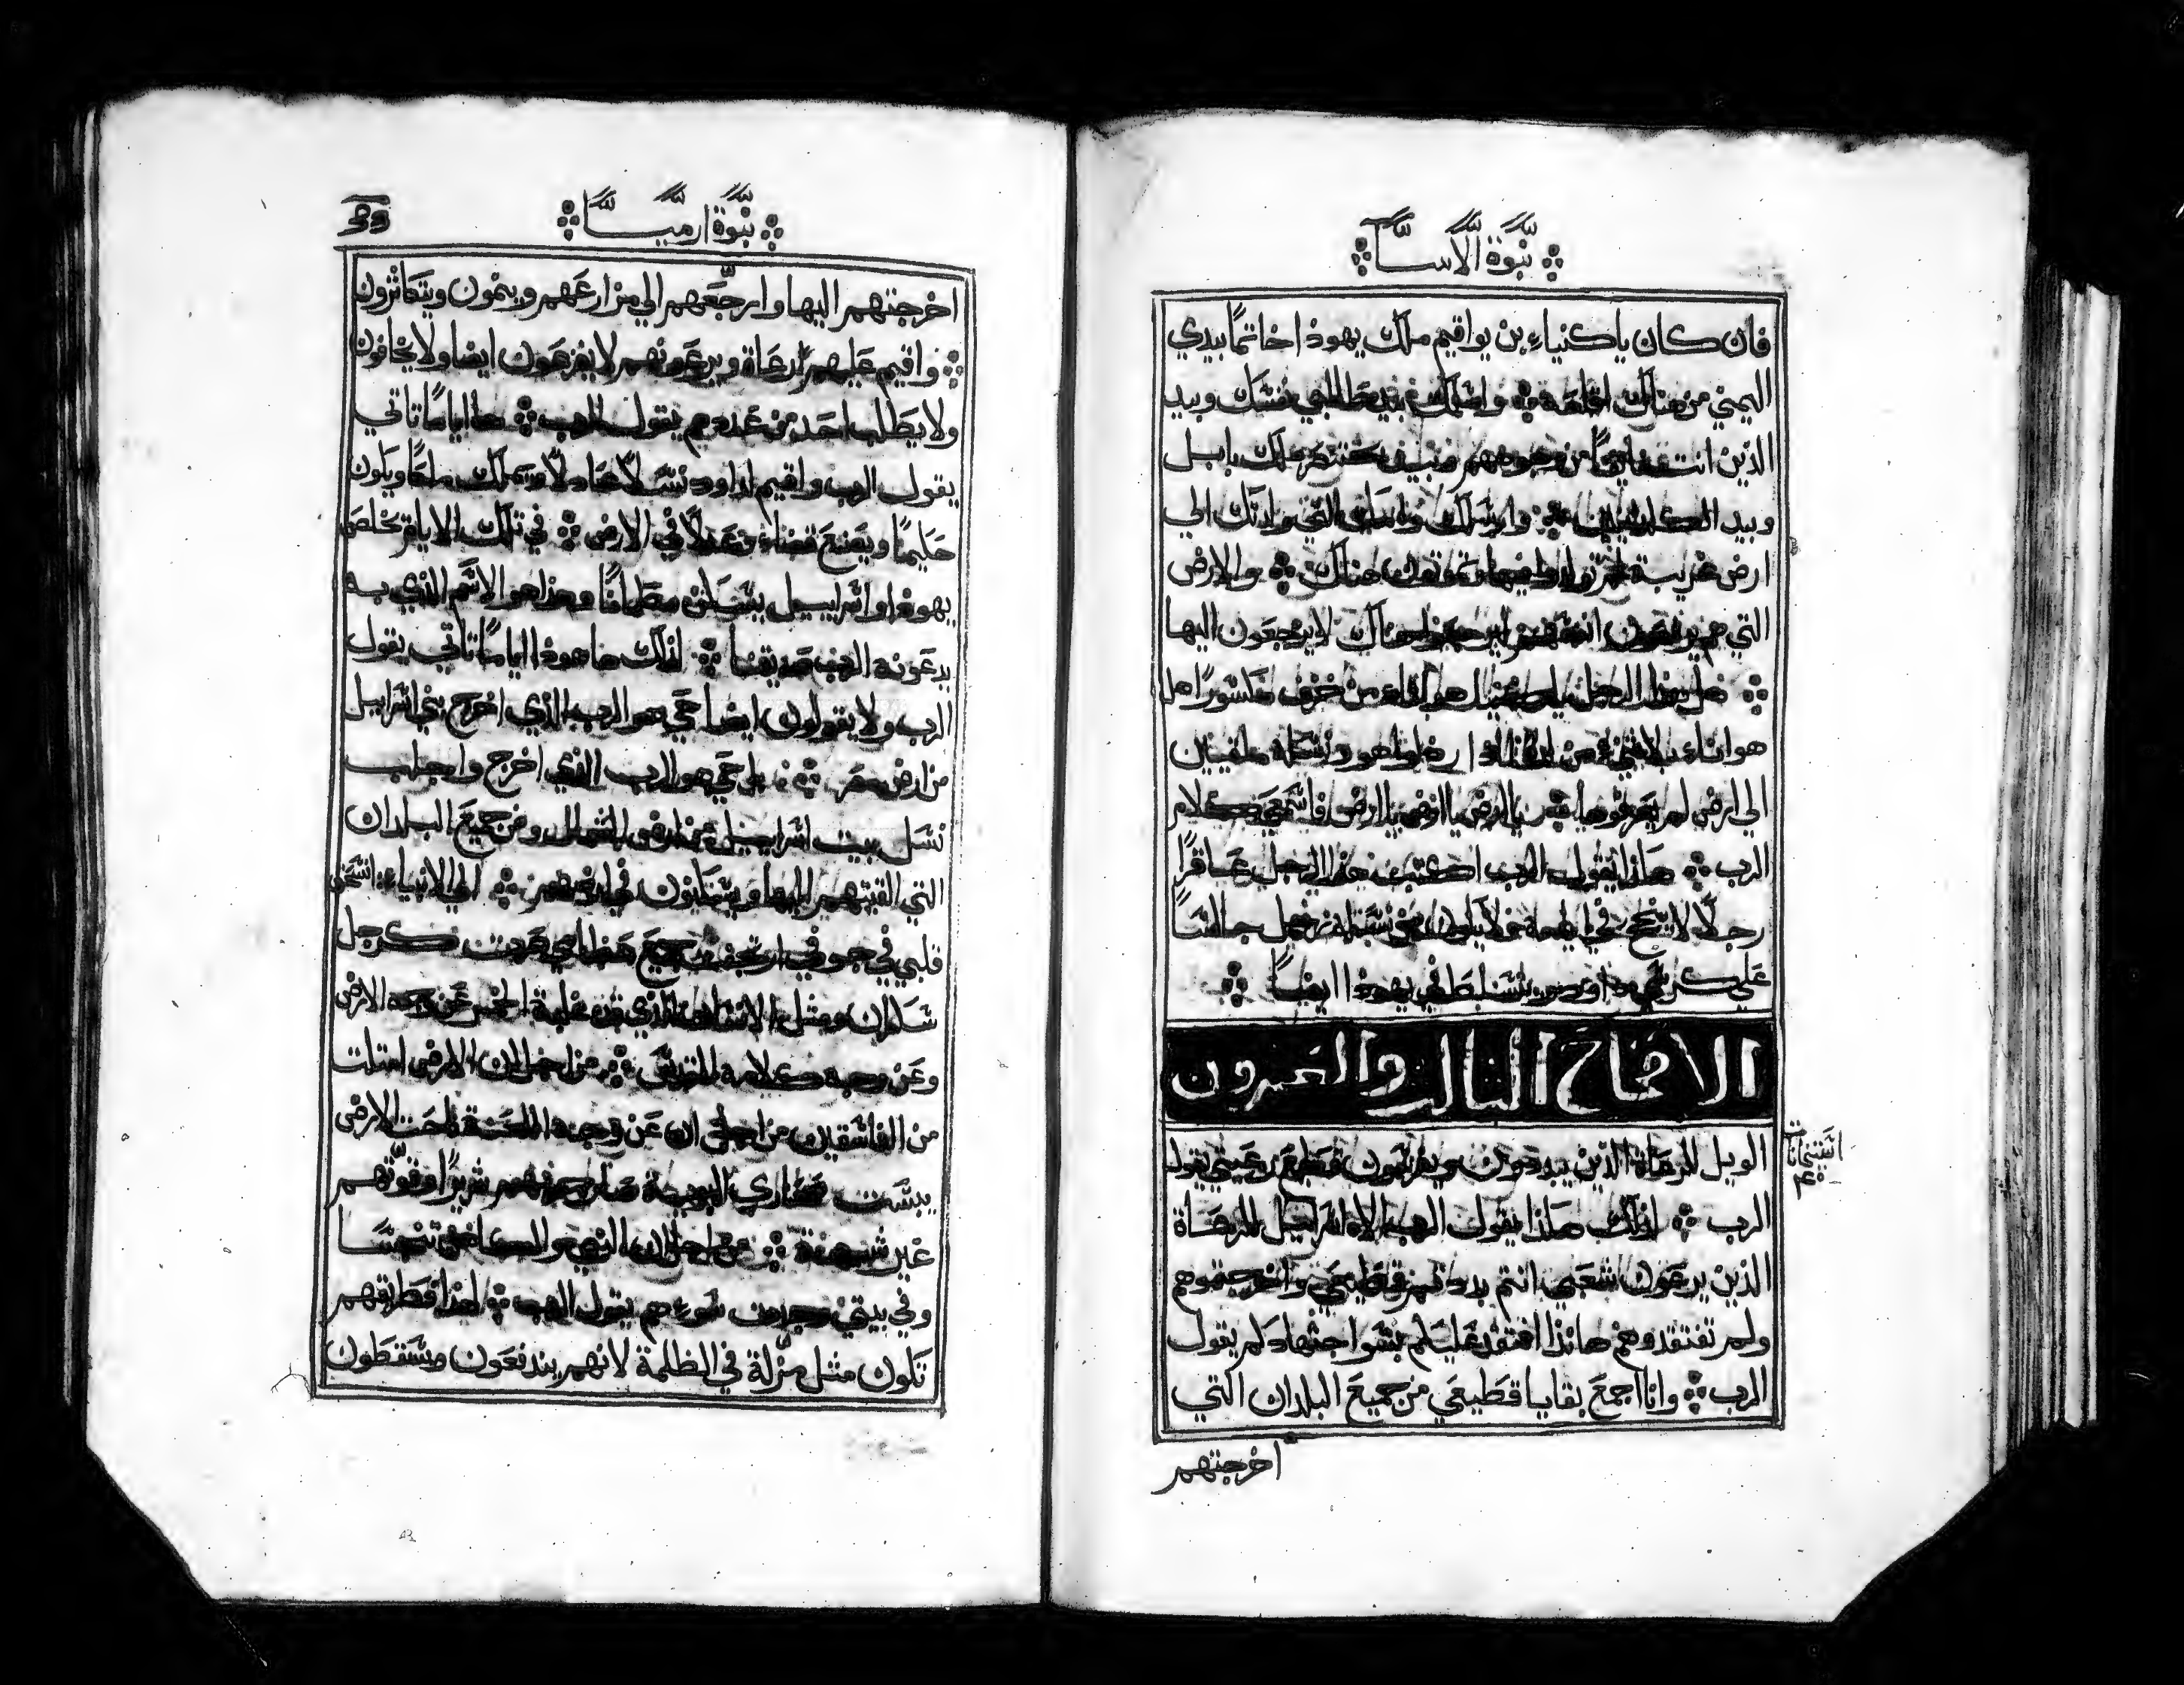 نبوة الانبيا
فان كان ياكنياء بن يواقيم ملك يهوذا خاتمًا بيدي
اليمني من هناك اقلعه واعطيك بيد طالبي نفسك وبيد
الذين انت من وجوههم بختنصر ملك بابل
وبيد الكلدانيين وارسلك وامك التي ولدتك الي
ارض غريبة لم تولدوا فيها وتموتون هناك والارض
التي هم يرفعون انفسهم ليرجعوا هناك لا يرجعون اليها
هل هذا الرجل ياكنيا هو اناء من خزف مكسورًا هل
هو اناء بلا لذة هو ونسله ملقيين
الي ارض لم يعرفوها يا ارض يا ارض يا ارض فاسمعي كلام
الرب هاذا يقول الرب اكتب هذا الرجل عاقرًا
رجلًا لا ينجح في ايامه ولا يكون من نسله رجل جالسًا
علي كرسي داوود ويتسلط في يهوذا ايضًا
الاصحاح الثالث والعشرون
الويل للرعاة الذين يبددون ويفرقون قطيع رعيتي يقول
الرب لذلك هاكذا يقول الرب الاه اسراييل للرعاة
الذين يرعون شعبي انتم بددتم قطيعي واخرجتموهم
ولم تفتقدوهم هانذا افتقد عليكم بسو اجتهادكم يقول
الرب وانا اجمع بقايا قطيعي من جميع البلدان التي
اخرجتهم
نبوة ارميا
اخرجتهم اليها وارجعهم الي مزارعهم وينمون ويتكاثرون
واقيم عليهم رعاة ويرعونهم لا يفزعون ايضا ولا يخافون
ولا يطلب احد من عددهم يقول الرب ها اياما تاتي
يقول الرب واقيم لداود نسلًا عادلًا ويملك ملكًا ويكون
حكيمًا ويصنع قضاء وعدلًا في الارض في تلك الايام يخلص
يهوذا واسراييل يسكن مطمانًا وهذا هو الاسم الذي به
يدعونه الرب صديقنا لذلك ها هوذا اياما تاتي يقول
الرب ولا يقولون ايضا حي هو الرب الذي اخرج بني اسراييل
من ارض مصر بل حي هو الرب الذي اخرج واجلب
نسل بيت اسراييل من ارض الشمال ومن جميع البلدان
التي القيتهم اليها ويسكنون في ارضهم الي الانبياء انسحق
قلبي في جوفي ارتجفت جميع عظامي صرت كرجل
سكران ومثل الانسان الذي غلبه الخمر عن وجه الارض
وعن وجه كلامه المقدس من اجل ان الارض امتلت
من الفاسقين من اجل ان عن وجه اللعنة ناحت الارض
يبست صحاري البرية صار جريهم شريرًا وقوتهم
غير شبيهة من اجل ان النبي والكاهن تنجسا
وفي بيتي وجدت شرهم يقول الرب لهذا فطرقهم
تكون مثل مزلة في الظلمة لانهم يندفعون ويسقطون